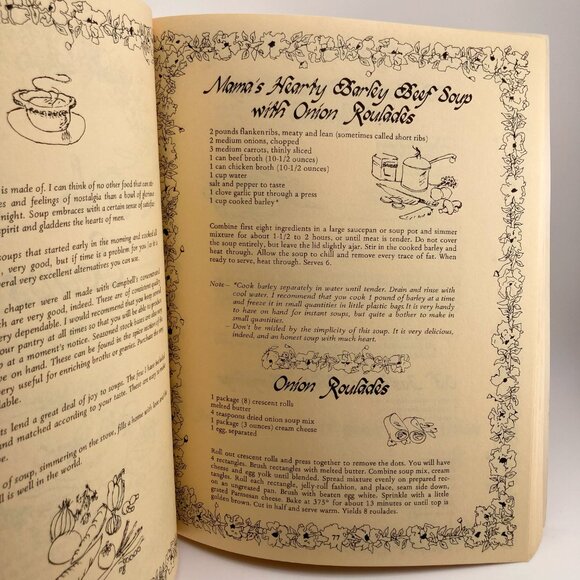 is made of. I can think of no other food that can to
es and feelings of nostalgia than a bowl of glorious
night. Soup embraces with a certain sense of satisfac
spirit and gladdens the hearts of men.
soups that started early in the morning and cooked
very good, but if time is a problem for you
eral very excellent alternatives you can use.
chapter were all made with Campbell's concentrated
ch are very good, indeed. These are of consistent
very dependable. I would recommend that you keep
our pantry at all times so that you will be able to produce
up at a moment's notice. Seasoned stock bases
be on hand. These can be found in the spice section
very useful for enriching broths or gravies. Purchase the
lable.
ts lend a great deal of joy to soups. The few I have included
and matched according to your taste. There are easy to make
of soup, simmering on the stove, fills a home with love and
ll is well in the world.
Mama's Hearty Barley Beef Soup
with Onion Roulades
2 pounds flanken ribs, meaty and lean (sometimes called short ribs)
2 medium onions, chopped
3 medium carrots, thinly sliced
1 can beef broth (10-1/2 ounces)
1 can chicken broth (10-1/2 ounces)
1 cup water
salt and pepper to taste
1 clove garlic put through a press
1 cup cooked barley*
Combine first eight ingredients in a large saucepan or soup pot and simmer
mixture for about 1-1/2 to 2 hours, or until meat is tender. Do not cover
the soup entirely, but leave the lid slightly ajar. Stir in the cooked barley and
heat through. Allow the soup to chill and remove every trace of fat. When
ready to serve, heat through. Serves 6.
Note— *Cook barley separately in water until tender. Drain and rinse with
cool water. I recommend that you cook 1 pound of barley at a time
and freeze it in small quantities in little plastic bags. It is very handy
to have on hand for instant soups, but quite a bother to make in
small quantities.
– Don't be misled by the simplicity of this soup. It is very delicious,
indeed, and an honest soup with much heart.
Onion Roulades
1 package (8) crescent rolls
melted butter
4 teaspoons dried onion soup mix
1 package (3 ounces) cream cheese
1 egg, separated
Roll out crescent rolls and press together to remove the dots. You will have
4 rectangles. Brush rectangles with melted butter. Combine soup mix, cream
cheese and egg yolk until blended. Spread mixture evenly on prepared rec-
tangles. Roll each rectangle, jelly-roll fashion, and place, seam side down,
on an ungreased pan. Brush with beaten egg white. Sprinkle with a little
grated Parmesan cheese. Bake at 375° for about 13 minutes or until top is
golden brown. Cut in half and serve warm. Yields 8 roulades.
77